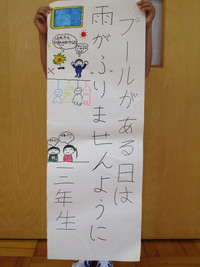 プールがある日は
雨がふりませんように
三年生